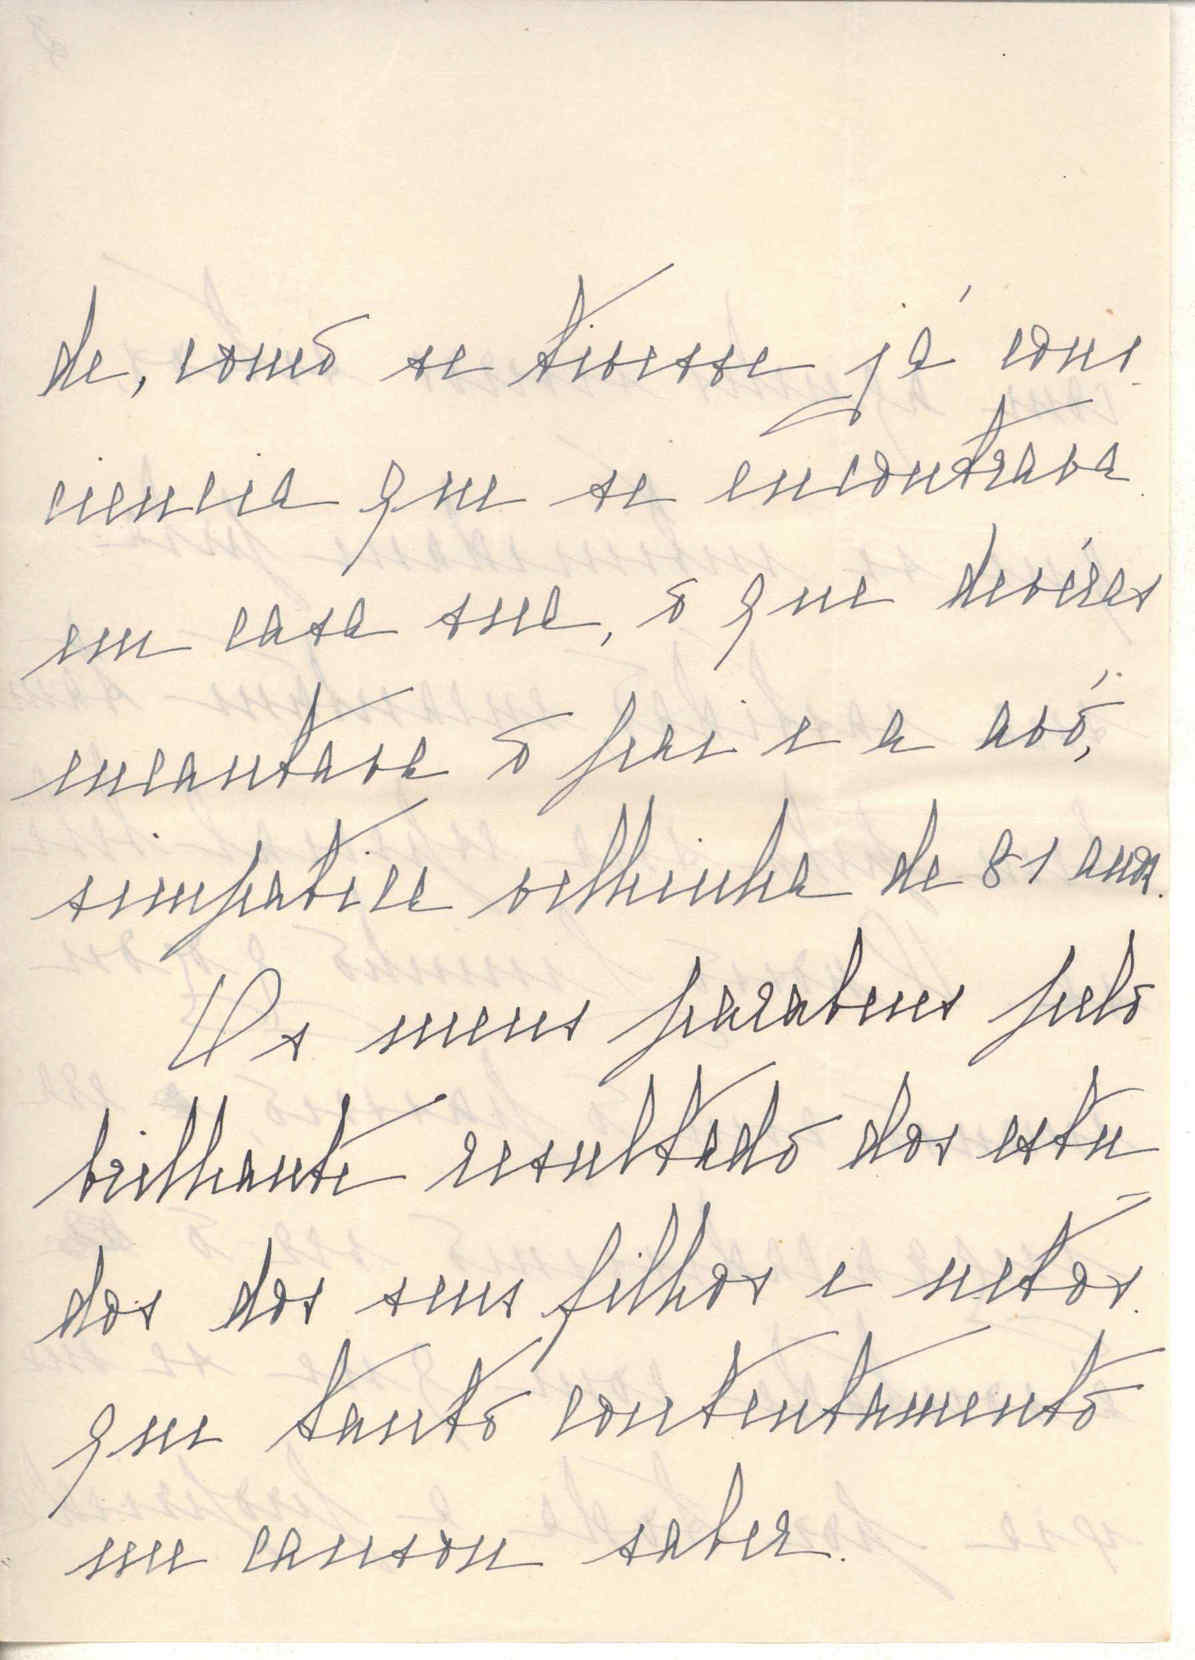 de, como se tivesse já cons
ciencia que se encontrava
em casa sua, o que devéras
encantava o pai e a avó,
simpatica velhinha de 81 anos.
Os meus parabens pelo
brilhante resultado dos estu
dos dos seus filhos e netos
que tanto contentamento
me causou saber.